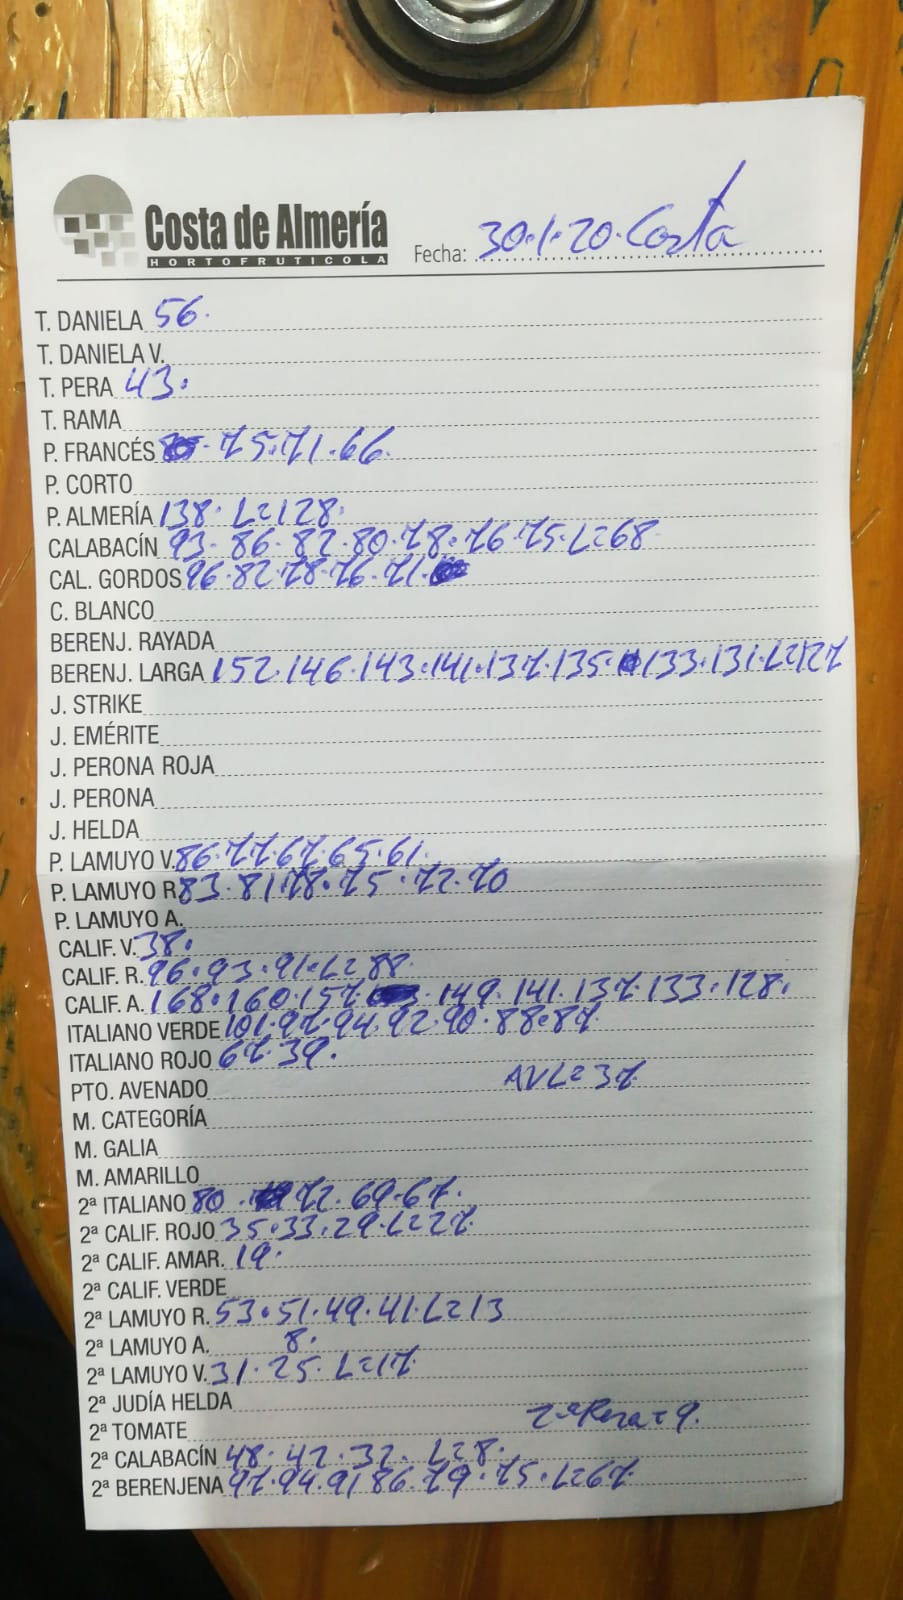 Costa de Almería
HORTOFRUTICOLA
Fecha: 30.1.20. Costa
T. DANIELA 56.
T. DANIELA V.
T. PERA 43.
T. RAMA
P. FRANCÉS 75.71.66.
P. CORTO
P. ALMERÍA 138. L=128.
CALABACÍN 93.86.82.80.78.76.75.L=68
CAL. GORDOS 96.82.78.76.71.
C. BLANCO
BERENJ. RAYADA
BERENJ. LARGA 152.146.143.141.137.135.133.131.L=127
J. STRIKE
J. EMÉRITE
J. PERONA ROJA
J. PERONA
J. HELDA
P. LAMUYO V. 86.77.67.65.61.
P. LAMUYO R 83.81.78.75.72.70
P. LAMUYO A.
CALIF. V. 38.
CALIF. R. 96.93.91.L=88.
CALIF. A. 168.160.157.149.141.137.133.128.
ITALIANO VERDE 101.97.94.92.90.88.87.
ITALIANO ROJO 67.39.
PTO. AVENADO AVL=37.
M. CATEGORÍA
M. GALIA
M. AMARILLO
2ª ITALIANO 80.72.69.67.
2ª CALIF. ROJO 35.33.29.L=27.
2ª CALIF. AMAR. 19.
2ª CALIF. VERDE
2ª LAMUYO R. 53.51.49.41.L=13
2ª LAMUYO A. 8.
2ª LAMUYO V. 31.25.L=17.
2ª JUDÍA HELDA
2ª TOMATE 2ª Pera=9.
2ª CALABACÍN 48.42.32. L=8.
2ª BERENJENA 97.94.91.86.79.75.L=67.